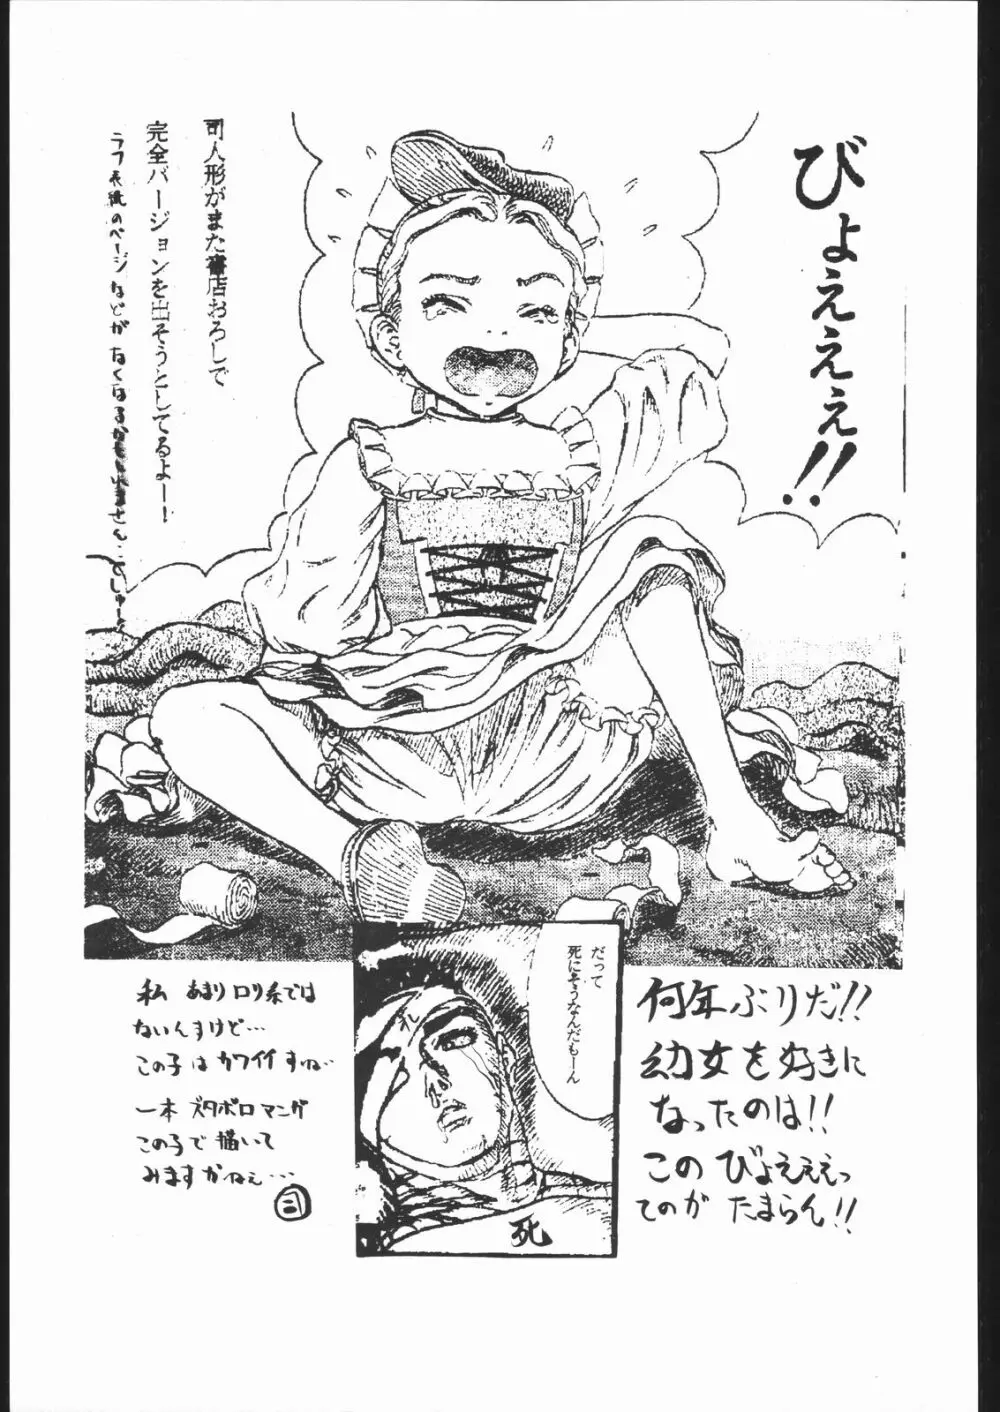 びょえええ!!
司人形がまた書店おろしで
完全バージョンを出そうとしてるよー!
だって
死にそうなんだもーん
札
死
何年ぶりだ!!
幼女を好きに
なったのは!!
この びょえええっ
てのが たまらん!!
私 あまりロリ系では
ないんすけど…
この子は カワイイ すね…
一本 ズタボロマンガ
この子で 描いて
みますかねぇ…